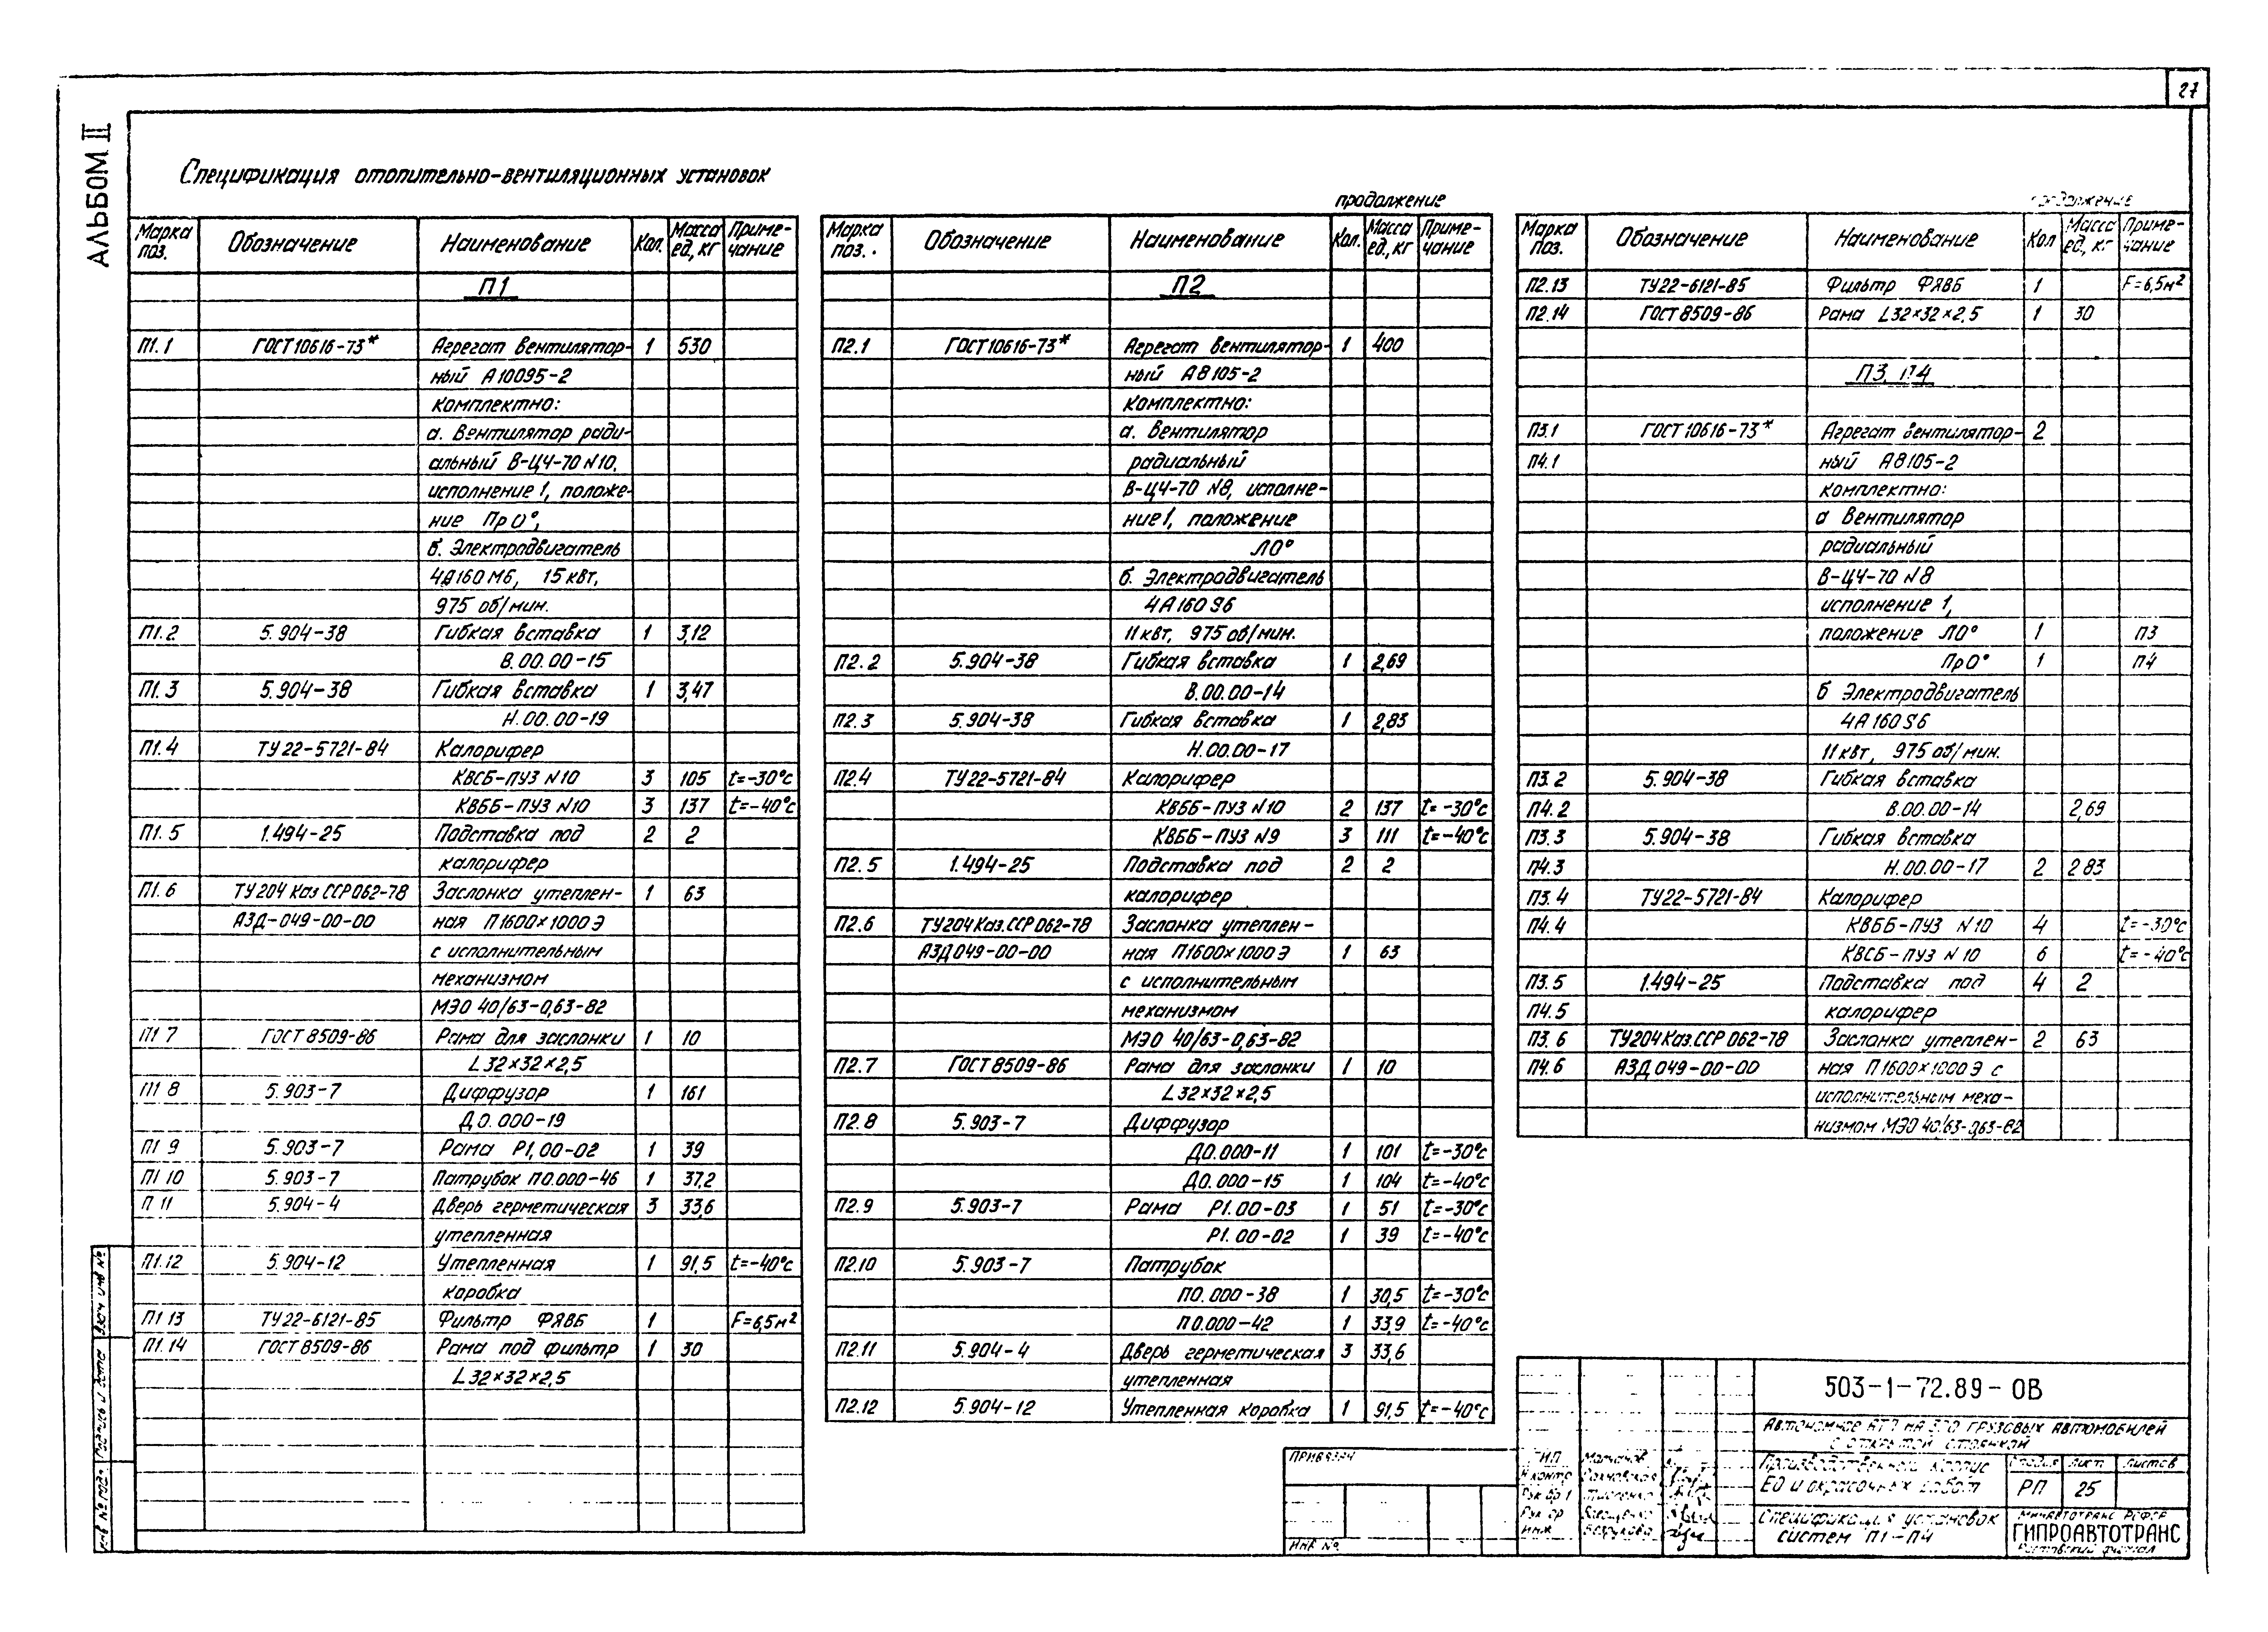 27
АЛЬБОМ II
Спецификация отопительно-вентиляционных установок
Марка поз. Обозначение Наименование Кол. Масса ед., кг Приме-чание
П1
П1.1 ГОСТ 10616-73* Агрегат вентилятор- 1 530
ный А10095-2
комплектно:
а. Вентилятор ради-
альный В-Ц4-70 N10,
исполнение 1, положе-
ние Пр 0°,
б. Электродвигатель
4А160М6, 15 квт,
975 об/мин.
П1.2 5.904-38 Гибкая вставка 1 3,12
В.00.00-15
П1.3 5.904-38 Гибкая вставка 1 3,47
Н.00.00-19
П1.4 ТУ 22-5721-84 Калорифер
КВСБ-ПУЗ N10 3 105 t=-30°с
КВББ-ПУЗ N10 3 137 t=-40°с
П1.5 1.494-25 Подставка под 2 2
калорифер
П1.6 ТУ204 Каз ССР 062-78 Заслонка утеплен- 1 63
АЗД-049-00-00 ная П1600×1000 Э
с исполнительным
механизмом
МЭО 40/63-0,63-82
П1 7 ГОСТ 8509-86 Рама для заслонки 1 10
L 32×32×2,5
П1 8 5.903-7 Диффузор 1 161
Д 0.000-19
П1 9 5.903-7 Рама Р1,00-02 1 39
П1 10 5.903-7 Патрубок П0.000-46 1 37,2
П 11 5.904-4 Дверь герметическая 3 33,6
утепленная
П1.12 5.904-12 Утепленная 1 91,5 t=-40°с
коробка
П1 13 ТУ22-6121-85 Фильтр ФЯВБ 1 F=6,5м²
П1.14 ГОСТ 8509-86 Рама под фильтр 1 30
L 32×32×2,5
продолжение
Марка поз. Обозначение Наименование Кол. Масса ед., кг Приме-чание
П2
П2.1 ГОСТ 10616-73* Агрегат вентилятор- 1 400
ный А8105-2
комплектно:
а. Вентилятор
радиальный
В-Ц4-70 N8, исполне-
ние 1, положение
Л0°
б. Электродвигатель
4А160S6
11 квт, 975 об/мин.
П2.2 5.904-38 Гибкая вставка 1 2,69
В.00.00-14
П2.3 5.904-38 Гибкая вставка 1 2,83
Н.00.00-17
П2.4 ТУ22-5721-84 Калорифер
КВББ-ПУЗ N10 2 137 t=-30°с
КВББ-ПУЗ N9 3 111 t=-40°с
П2.5 1.494-25 Подставка под 2 2
калорифер
П2.6 ТУ204 Каз.ССР 062-78 Заслонка утеплен-
АЗД 049-00-00 ная П1600×1000 Э 1 63
с исполнительным
механизмом
МЭО 40/63-0,63-82
П2.7 ГОСТ 8509-86 Рама для заслонки 1 10
L 32×32×2,5
П2.8 5.903-7 Диффузор
Д0.000-11 1 101 t=-30°с
Д0.000-15 1 104 t=-40°с
П2.9 5.903-7 Рама Р1.00-03 1 51 t=-30°с
Р1.00-02 1 39 t=-40°с
П2.10 5.903-7 Патрубок
П0.000-38 1 30,5 t=-30°с
П0.000-42 1 33,9 t=-40°с
П2.11 5.904-4 Дверь герметическая 3 33,6
утепленная
П2.12 5.904-12 Утепленная коробка 1 91,5 t=-40°с
продолжение
Марка поз. Обозначение Наименование Кол Масса ед., кг Приме-чание
П2.13 ТУ22-6121-85 Фильтр ФЯВБ 1 F=6,5м²
П2.14 ГОСТ 8509-86 Рама L32×32×2,5 1 30
П3, П4
П3.1 ГОСТ 10616-73* Агрегат вентилятор- 2
П4.1 ный А8105-2
комплектно:
а Вентилятор
радиальный
В-Ц4-70 N8
исполнение 1,
положение Л0° 1 П3
Пр0° 1 П4
б Электродвигатель
4А160S6
11 квт, 975 об/мин.
П3.2 5.904-38 Гибкая вставка
П4.2 В.00.00-14 2,69
П3.3 5.904-38 Гибкая вставка
П4.3 Н.00.00-17 2 2 83
П3.4 ТУ22-5721-84 Калорифер
П4.4 КВББ-ПУЗ N10 4 t=-30°с
КВСБ-ПУЗ N10 6 t=-40°с
П3.5 1.494-25 Подставка под 4 2
П4.5 калорифер
П3.6 ТУ204 Каз.ССР 062-78 Заслонка утеплен- 2 63
П4.6 АЗД 049-00-00 ная П1600×1000 Э с
исполнительным меха-
низмом МЭО 40/63-0,63-82
Взам инв №
Подпись и дата
Инв № подл
ПРИВЯЗАН
ИНВ №
ГИП Молчанов
Н контр
Рук бр 1
Рук гр
инж
503-1-72.89-ОВ
Автономное АТП на 300 грузовых автомобилей
с открытой стоянкой
Производственный корпус
ЕО и окрасочных работ
Стадия Лист Листов
РП 25
Спецификация установок
систем П1-П4
МИНАВТОТРАНС РСФСР
ГИПРОАВТОТРАНС
Ростовский филиал